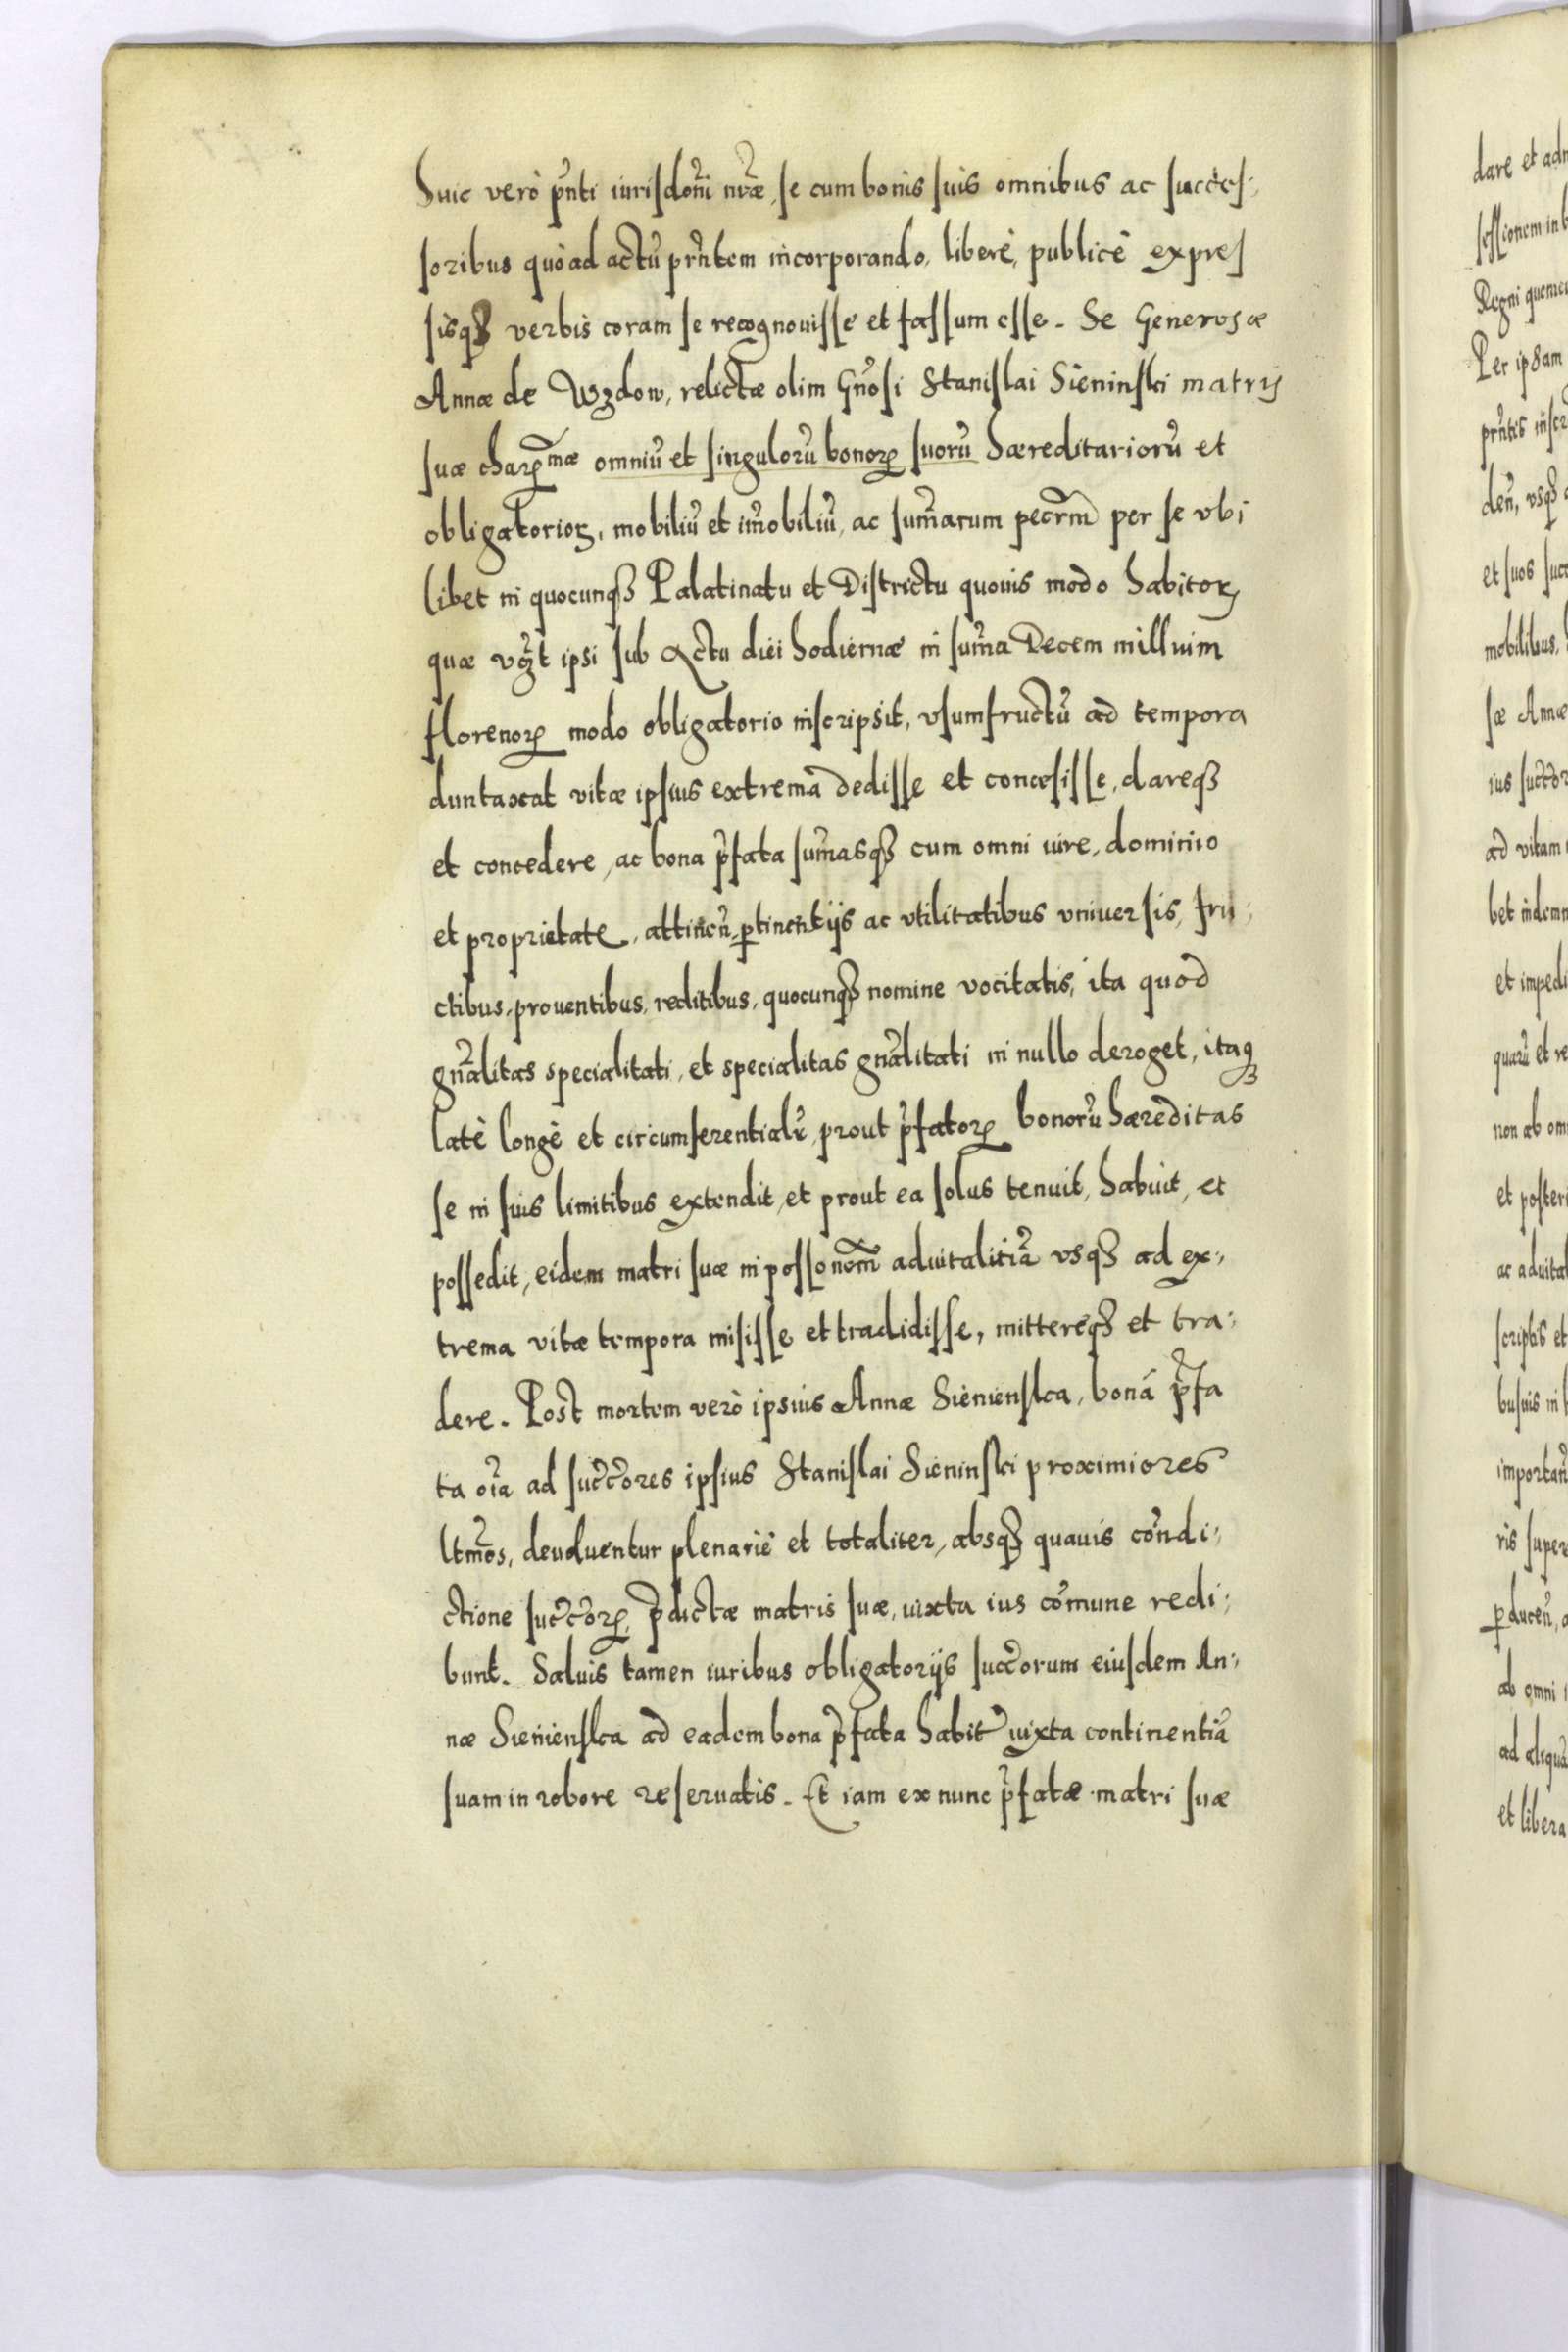 Huic verò pñti iurisdoñi nr̃æ, se cum bonis suis omnibus ac succes:
soribus quòad actũ prñtem incorporando, liberè, publicè expres
sisqꝫ verbis coram se recognouisse et fassum esse. Se Generosæ
Annæ de Wzdow, relictæ olim Gñosi Stanislai Sieninski matris
suæ charꝛ̃mæ omniũ et singulorũ bonorꝝ suorũ hæreditariorũ et
obligatorioꝝ, mobiliũ et im̃obiliũ, ac sum̃arum pecr̃m per se vbi
libet in quocunqꝫ Palatinatu et Districtu quouis modo habitoꝝ
quæ vgr̃t ipsi sub Actu diei hodiernæ in sum̃a Decem millium
florenorꝝ modo obligatorio inscripsit, vsumfructũ ad tempora
duntaxat vitæ ipsius extrema dedisse et concesisse, dareqꝫ
et concedere, ac bona p̃fata sum̃asqꝫ cum omni iure, dominio
et proprietate, attineñ, ꝑtinentijs ac vtilitatibus vniuersis, fru:
ctibus, prouentibus, reditibus, quocunqꝫ nomine vocitatis, ita quod
gñalitas specialitati, et specialitas gñalitati in nullo deroget, itaqꝫ
latè longè et circumferentialr̃, prout p̃fatorꝝ bonorũ hæreditas
se in suis limitibus extendit, et prout ea solus tenuit, habuit, et
possedit, eidem matri suæ in possonem̃ aduitalitiã vsqꝫ ad ex:
trema vitæ tempora misisse et tradidisse, mittereqꝫ et tra:
dere. Post mortem verò ipsius Annæ Sienienska, bona p̃fa
ta oĩa ad succ̃ores ipsius Stanislai Sieninski proximiores
ltm̃os, deuoluentur plenariè et totaliter, absqꝫ quauis condi:
ctione succ̃orꝝ, p̃dictæ matris suæ, iuxta ius cõmune redi:
bunt. Saluis tamen iuribus obligatorijs succ̃orum eiusdem An:
næ Sienienska ad eadem bona p̃fata habit̃ iuxta continentiã
suam in robore reseruatis. Et iam ex nunc p̃fatæ matri suæ
dare et
sessionem in
Regni
Per ipsam
prñtis
deñ, vsqꝫ
et suos
mobilibus,
sæ Annæ
ius
ad vitam
bet
et
quarũ et
non ab
et
ac
scriptis et
busuis in
ris
ꝑduceñ,
ab omni
ad
et libera